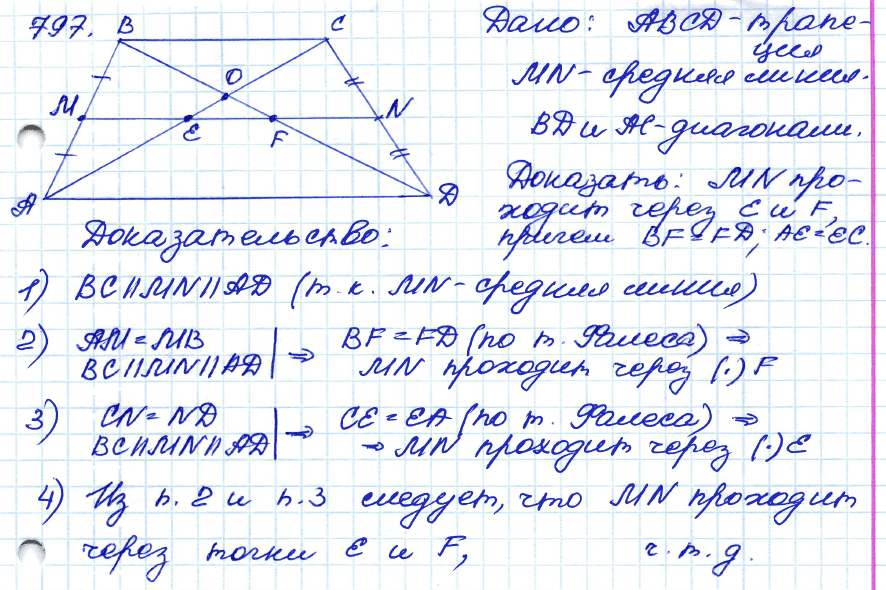 797.
B
C
O
M
E
F
N
A
D
Дано: ABCD - трапе-
ция
MN - средняя линия.
BD и AC - диагонали.
Доказать: MN про-
ходит через E и F,
причем BF = FD; AE = EC.
Доказательство:
1) BC || MN || AD (т.к. MN - средняя линия)
2) AM = MB | ⇒ BF = FD (по т. Фалеса) ⇒
BC || MN || AD | MN проходит через (·) F
3) CN = ND | ⇒ CE = EA (по т. Фалеса) ⇒
BC || MN || AD | ⇒ MN проходит через (·) E
4) Из п. 2 и п. 3 следует, что MN проходит
через точки E и F, ч. т. д.